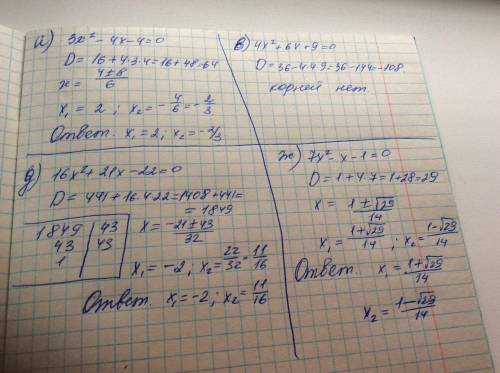 а) 3x² - 4x - 4 = 0
D = 16 + 4·3·4 = 16 + 48 = 64
x = (4 ± 8)/6
x₁ = 2 ; x₂ = -4/6 = -2/3
Ответ. x₁ = 2, x₂ = -2/3
в) 4x² + 6x + 9 = 0
D = 36 - 4·4·9 = 36 - 144 = -108.
корней нет
д) 16x² + 21x - 22 = 0
D = 441 + 16·4·22 = 1408 + 441 =
= 1849
1849 | 43
43 | 43
1 |
x = (-21 ± 43)/32
x₁ = -2, x₂ = 22/32 = 11/16
Ответ. x₁ = -2 ; x₂ = 11/16
ж) 7x² - x - 1 = 0
D = 1 + 4·7 = 1 + 28 = 29
x = (1 ± √29)/14
x₁ = (1+√29)/14 ; x₂ = (1-√29)/14
Ответ. x₁ = (1+√29)/14
x₂ = (1-√29)/14